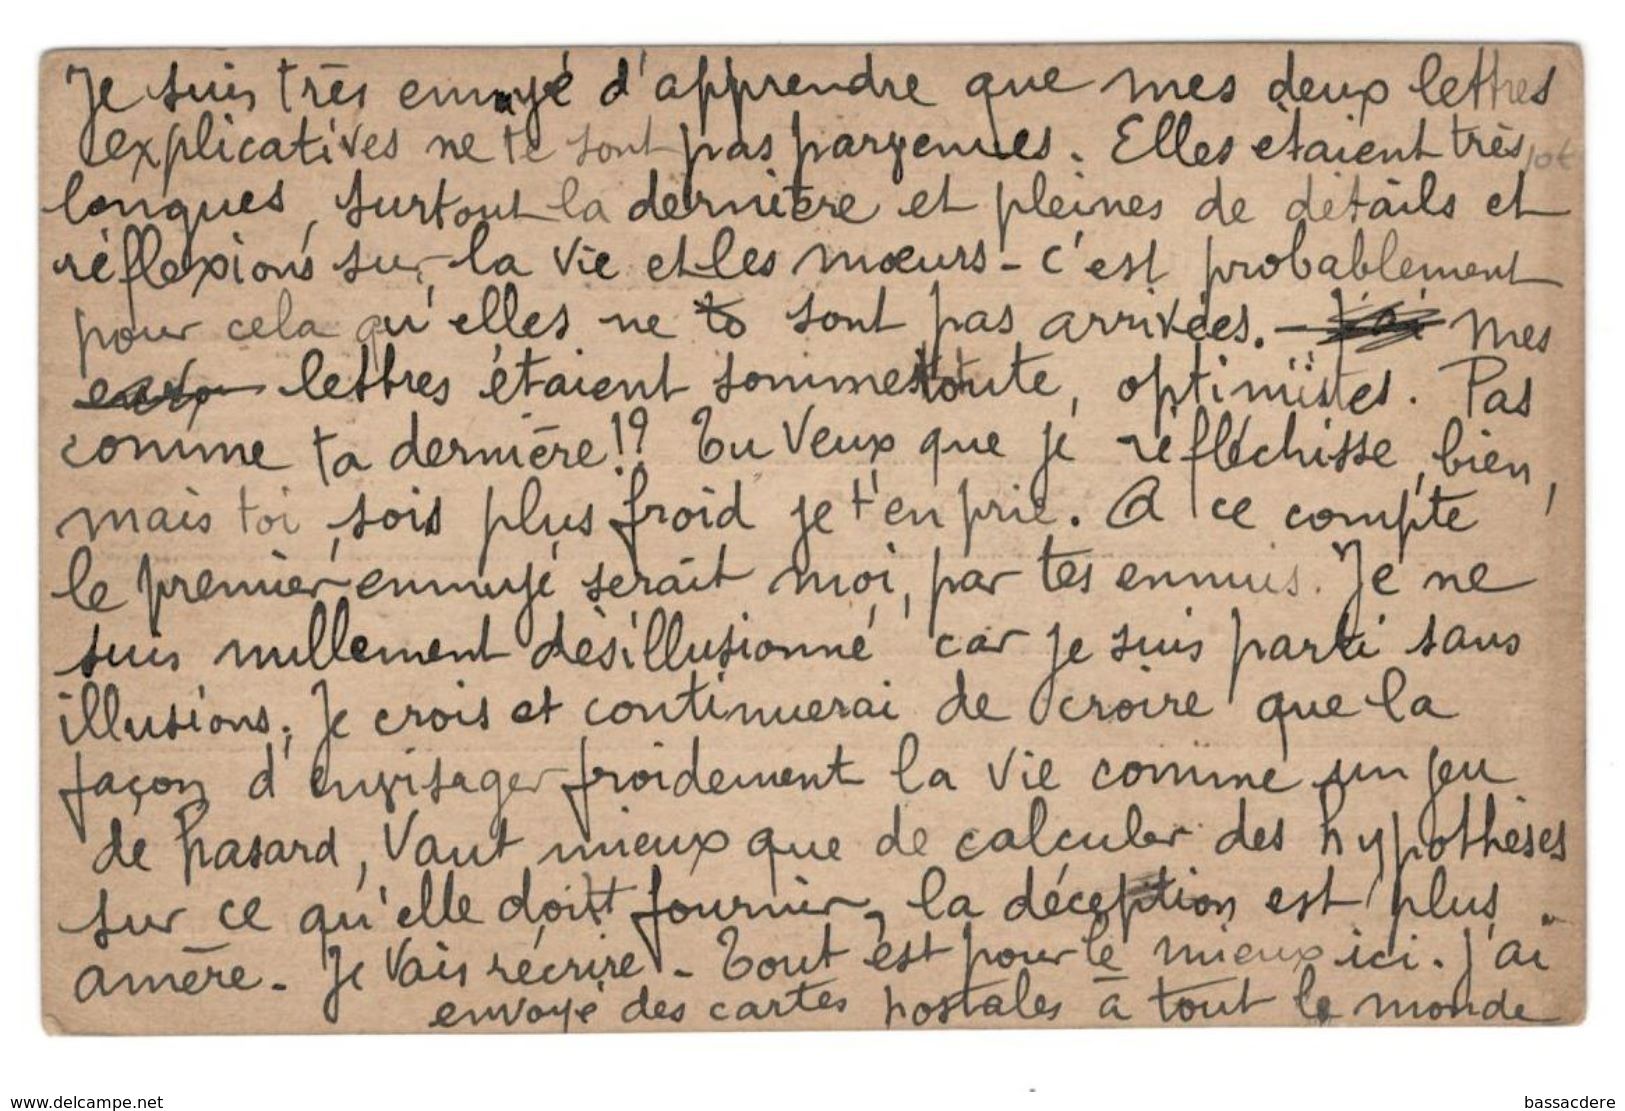 Je suis très ennuyé d'apprendre que mes deux lettres
explicatives ne te sont pas parvenues. Elles étaient très
longues, surtout la dernière et pleines de détails et
réflexions sur la vie et les mœurs - c'est probablement
pour cela qu'elles ne sont pas arrivées. - mes
lettres étaient somme toute, optimistes. Pas
comme ta dernière!? Tu veux que je réfléchisse, bien,
mais toi, sois plus froid je t'en prie. A ce compte
le premier ennuyé serait moi, par tes ennuis. Je ne
suis nullement désillusionné car je suis parti sans
illusions. Je crois et continuerai de croire que la
façon d'envisager froidement la vie comme un jeu
de hasard, vaut mieux que de calculer des hypothèses
sur ce qu'elle doit fournir, la déception est plus
amère. Je vais récrire. Tout est pour le mieux ici. J'ai
envoyé des cartes postales à tout le monde
www.delcampe.net
bassacdere